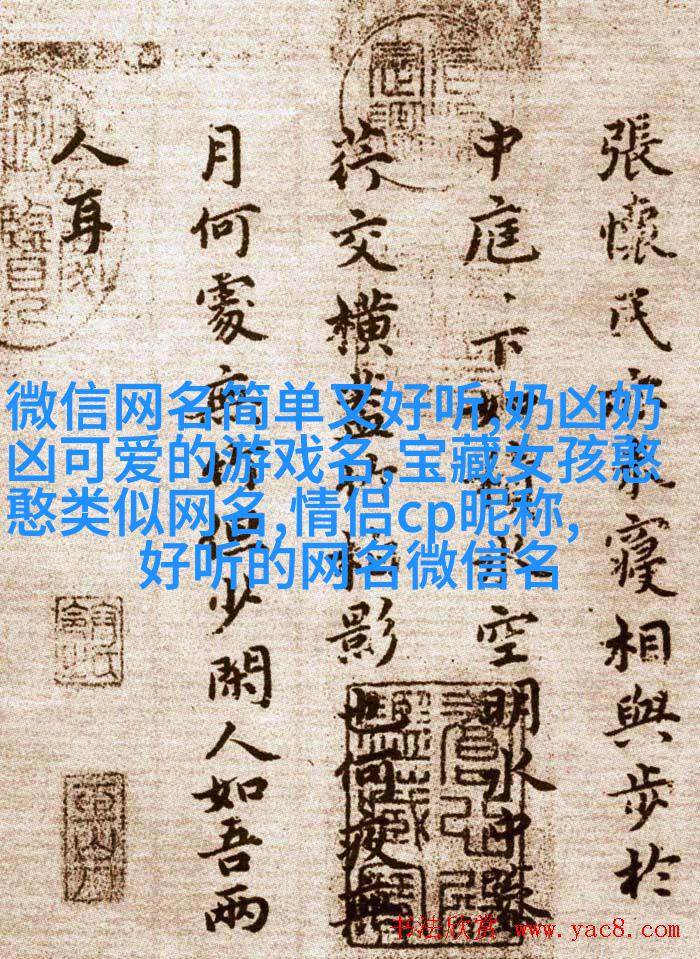 張懷民寢相與步於
中庭、下空明水中藻
荇交橫蓋竹柏影也何夜無
月何處無竹柏少閑人如吾兩
人耳
微信网名简单又好听,奶凶奶
凶可爱的游戏名,宝藏女孩憨
憨类似网名,情侣cp昵称,
好听的网名微信名
书法欣赏 www.yac8.com